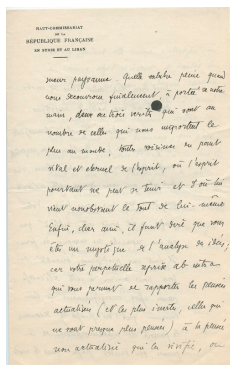 HAUT-COMMISSARIAT
DE LA
RÉPUBLIQUE FRANÇAISE
EN SYRIE ET AU LIBAN
Quelle peine quand
nous découvrons finalement à portée de notre
main, deux ou trois vérités qui sont au
nombre de celles qui nous importent le
plus au monde, toutes voisines en point
vital et éternel de l'esprit, où l'esprit
pourtant ne peut se tenir et d'où lui
vient nonobstant le tout de lui-même
Enfin, cher ami, il faut dire que vous
êtes un mystique de l'analyse de idées,
car votre perpétuelle reprise ab intra
qui vous permet de rapporter les pensées
actualisées (et les plus inertes, celles qui
ne sont presque plus pensées) à la pensée
non actualisée qui les vivifie, ou